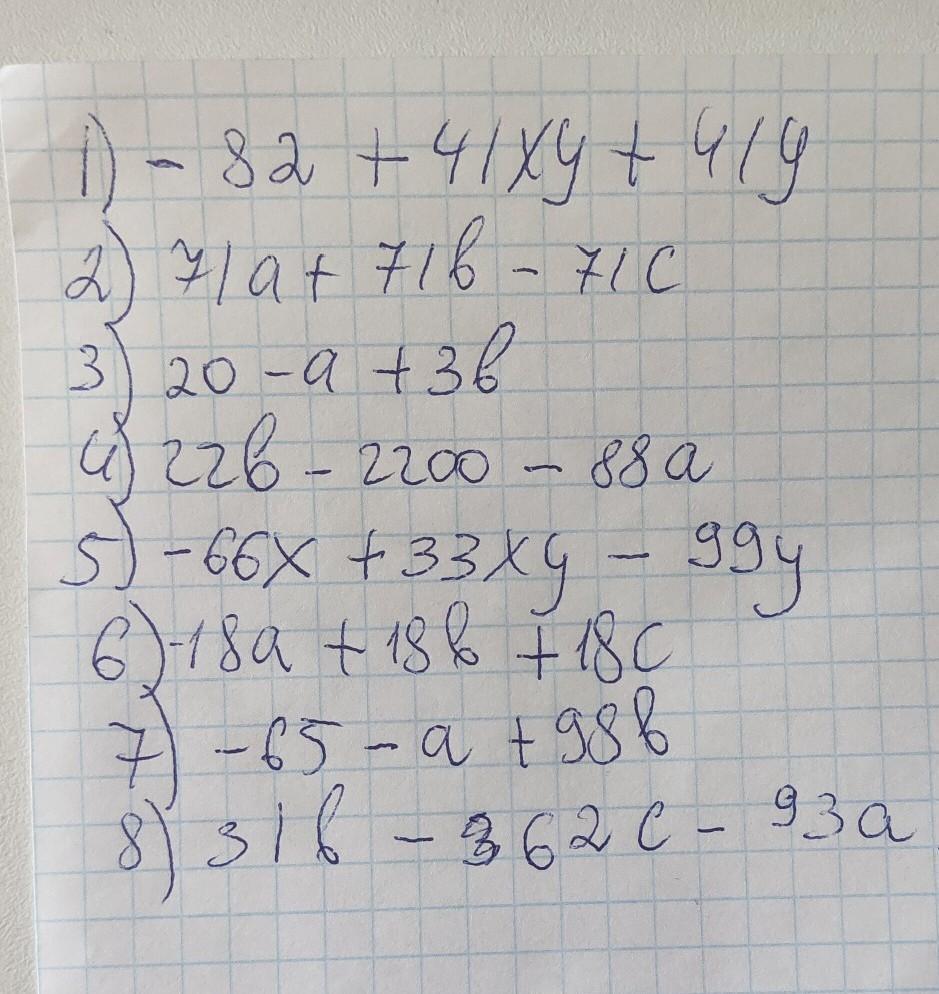 1) - 82 + 41xy + 41y
2) 71a + 71b - 71c
3) 20 - a + 3b
4) 22b - 2200 - 88a
5) -66x + 33xy - 99y
6) -18a + 18b + 18c
7) -65 - a + 98b
8) 31b - 362c - 93a